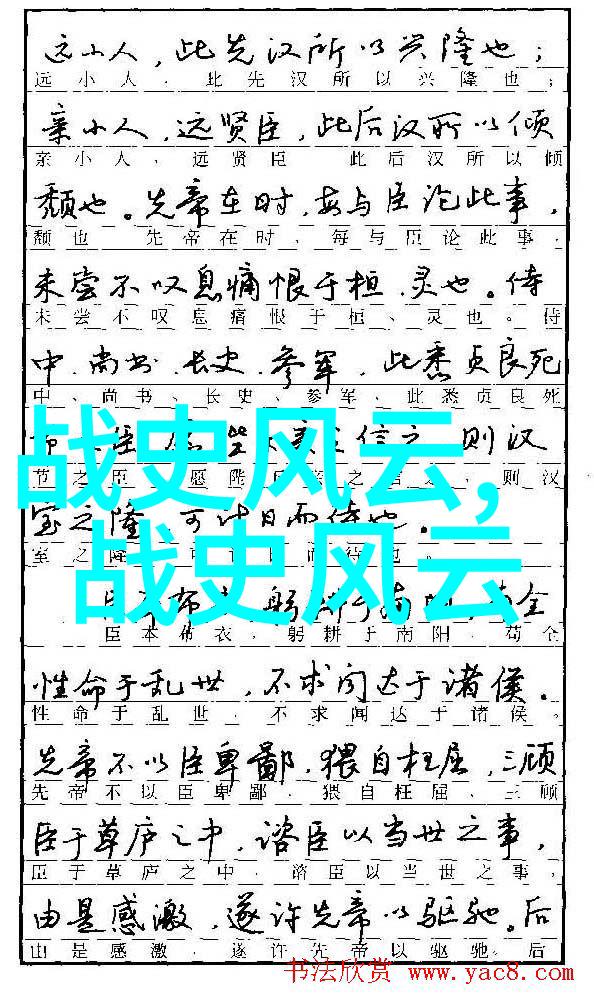 远小人，此先汉所以兴隆也；
远小人，此先汉所以兴隆也；
亲小人，远贤臣，此后汉所以倾
亲小人，远贤臣 此后汉所以倾
颓也。先帝在时，每与臣论此事，
颓也 先帝在时，每与臣论此事，
未尝不叹息痛恨于桓、灵也。侍
未尝不叹息痛恨于桓、灵也。侍
中、尚书、长史、参军，此悉贞良死
中、尚书、长史、参军，此悉贞良死
战史风云，
臣愿 信之 则汉
节之臣 愿陛 之信之，则汉
室之隆，可计日而待也。
室之隆 可计日而待也。
战史风云
臣本布衣，躬耕于南阳，苟全
臣本布衣，躬耕于南阳，苟全
性命于乱世，不求闻达于诸侯。
性命于乱世，不求闻达于诸侯。
先帝不以臣卑鄙，猥自枉屈，三顾
先帝不以臣卑鄙，猥自枉屈、三顾
臣于草庐之中，谘臣以当世之事，
臣于草庐之中，谘臣以当世之事，
由是感激，遂许先帝以驱驰。后
由是感激，遂许先帝以驱驰。后
书法欣赏 www.yac8.com